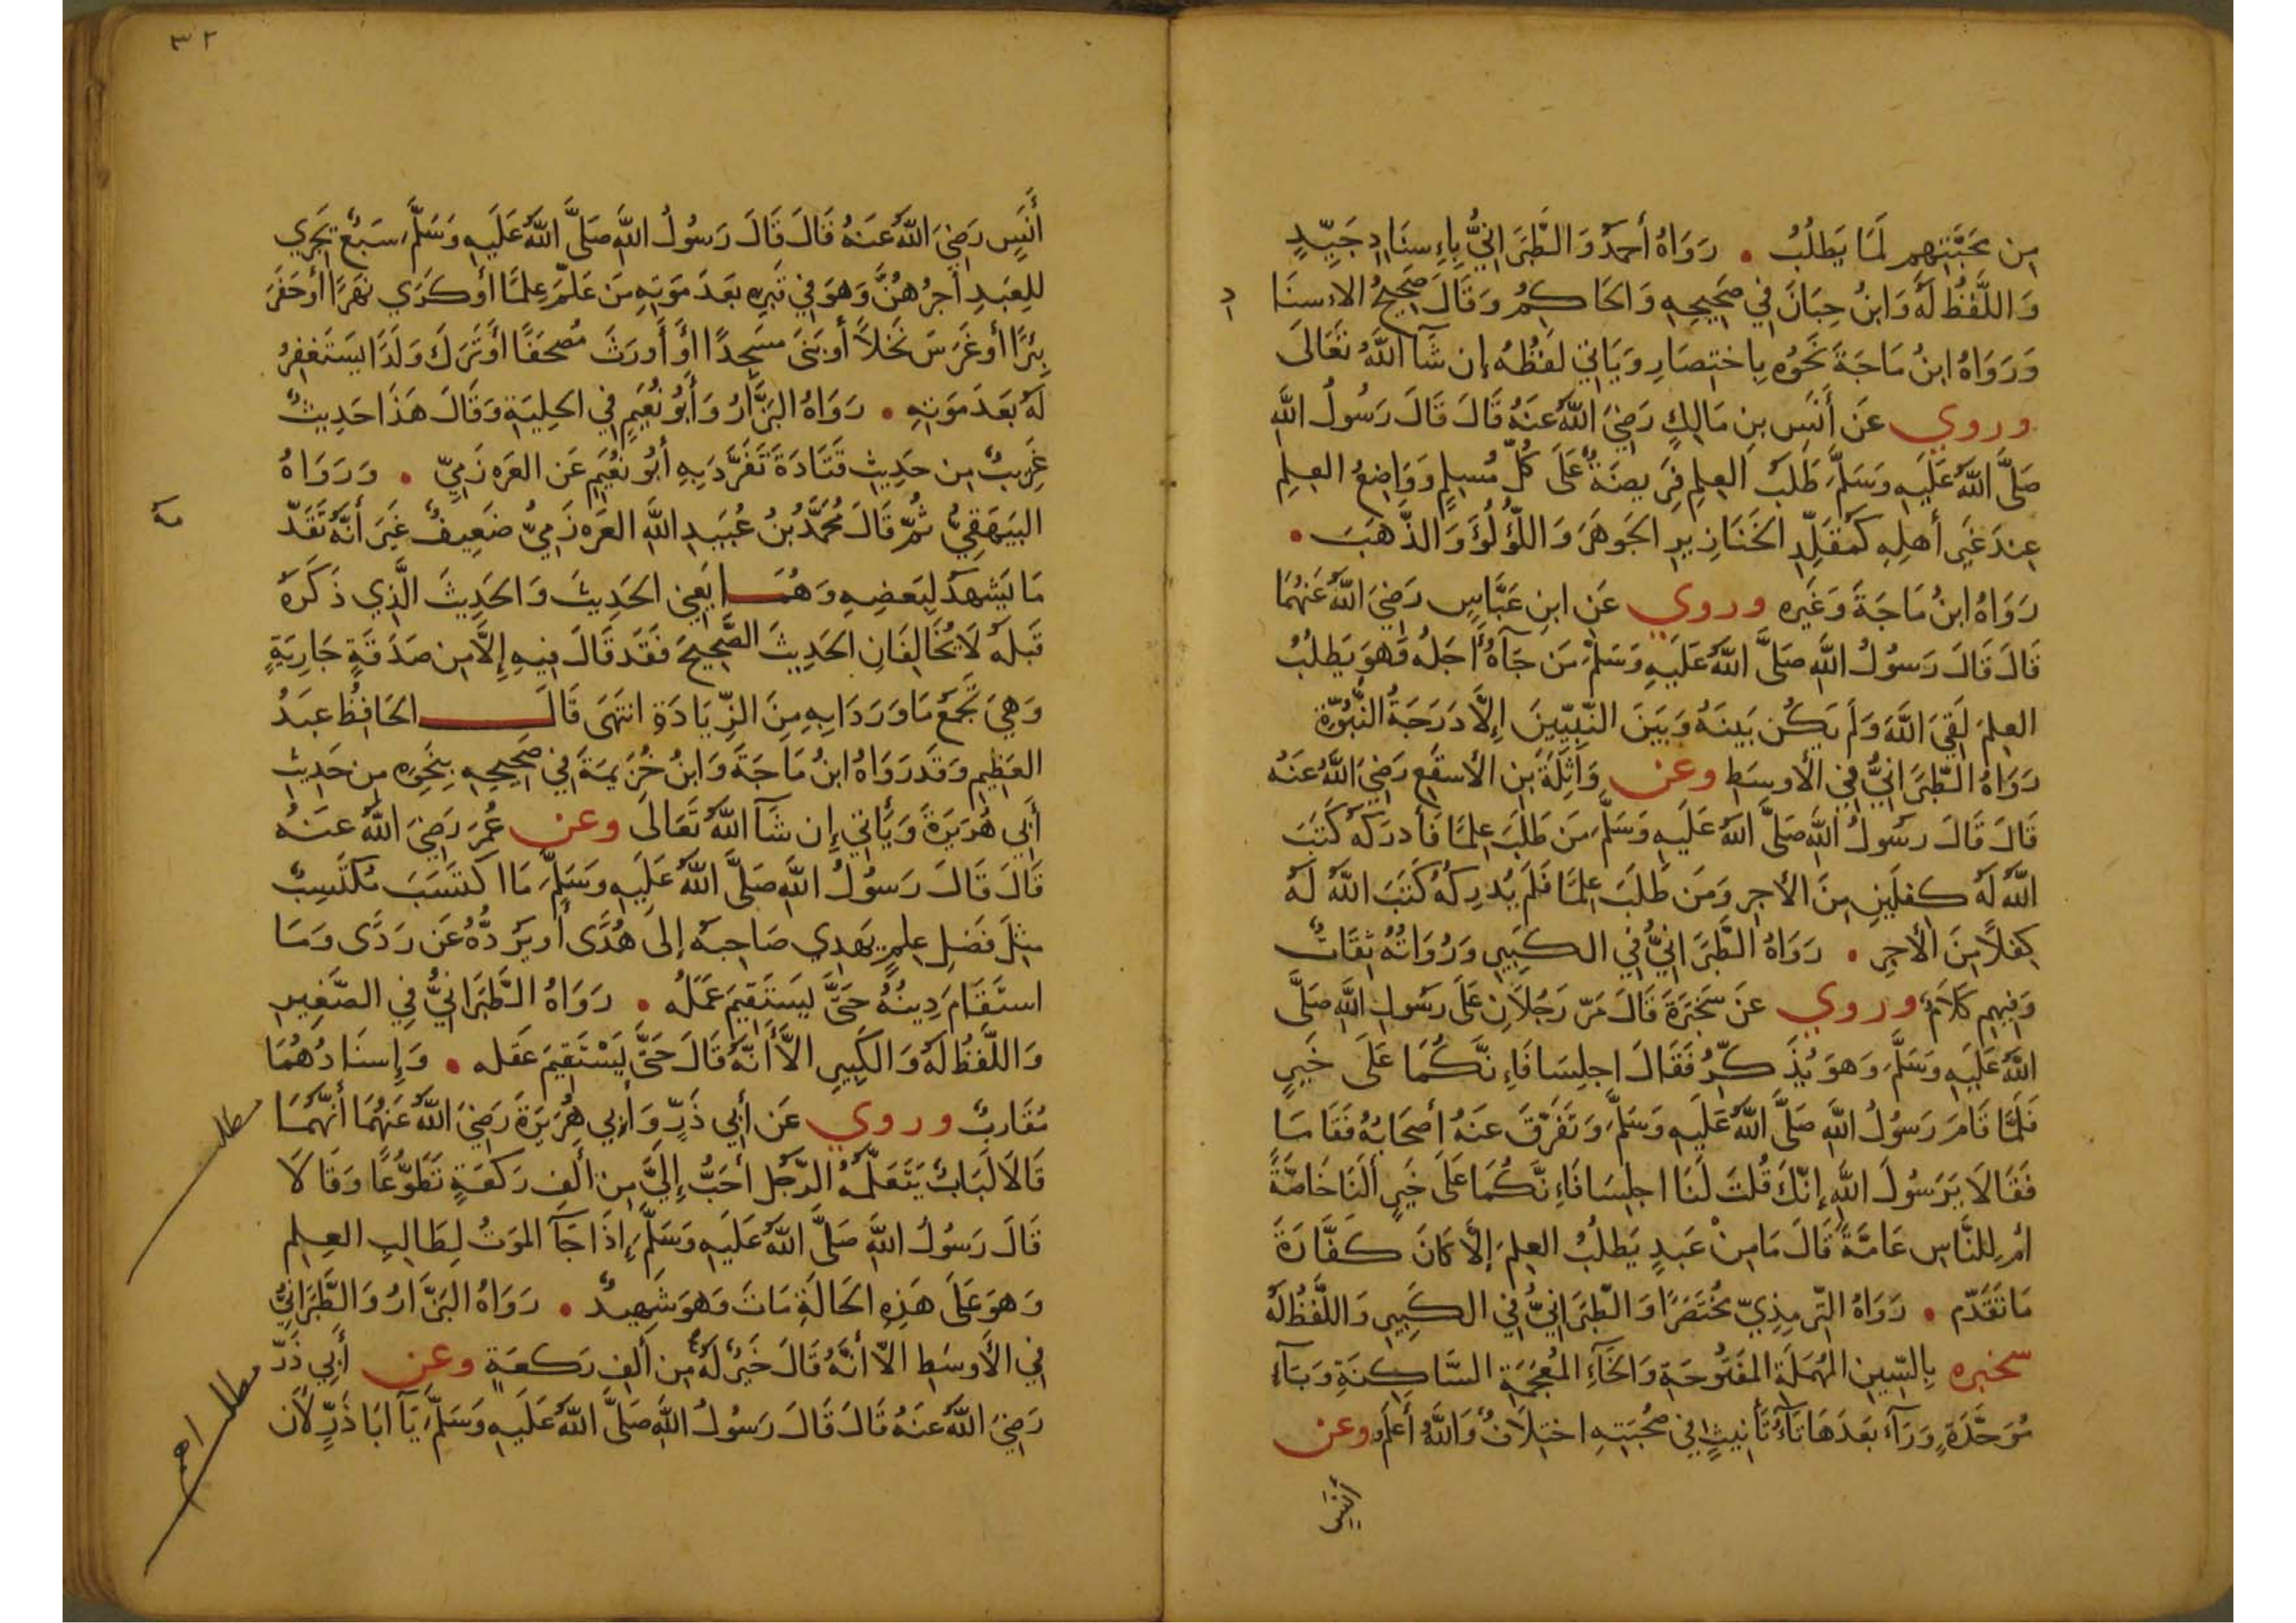 مِن مَحَبَّتِهِم لِمَا يَطلُبُ . رَوَاهُ أَحمَدُ وَالطَّبَرَانِيُّ بِإِسنَادٍ جَيِّدٍ
وَاللَّفظُ لَهُ وَابنُ حِبَانَ فِي صَحِيحِهِ وَالحَاكِمُ وَقَالَ صَحِيحُ الإسنَا
د
وَرَوَاهُ ابنُ مَاجَةَ نَحَوَهُ بِاختِصَارٍ وَيَاتِي لَفظُهُ إن شَآ اللَّهُ تَعَالَى
وروي عَن أَنَسِ بنِ مَالِكٍ رَضِيَ اللَّهُ عَنهُ قَالَ قَالَ رَسُولُ اللَّهِ
صَلَّى اللَّهُ عَلَيهِ وَسَلَّمَ طَلَبُ العِلمِ فَرِيضَةٌ عَلَى كُلِّ مُسلِمٍ وَوَاضِعُ العِلمِ
عِندَ غَيرِ أَهلِهِ كَمُقَلِّدِ الخَنَازِيرِ الجَوهَرَ وَاللُّؤلُؤَ وَالذَّهَبَ .
رَوَاهُ ابنُ مَاجَةَ وَغَيرِهِ وروي عَنِ ابنِ عَبَّاسٍ رَضِيَ اللَّهُ عَنهُمَا
قَالَ قَالَ رَسُولُ اللَّهِ صَلَّى اللَّهُ عَلَيهِ وَسَلَّمَ مَن جَآهُ أَجَلُهُ وَهوَ يَطلُبُ
العِلمَ لَقِيَ اللَّهَ وَلَم يَكُن بَينَهُ وَبَينَ النَّبِيِّينَ إِلَّا دَرَجَةُ النُّبُوَّةِ
رَوَاهُ الطَّبَرَانِيُّ فِي الأَوسَطِ وعن وَاثِلَةَ بنِ الأَسقَعِ رَضِيَ اللَّهُ عَنهُ
قَالَ قَالَ رَسُولُ اللَّهِ صَلَّى اللَّهُ عَلَيهِ وَسَلَّمَ مَن طَلَبَ عِلمًا فَأَدرَكَهُ كَتَبَ
اللَّهُ لَهُ كِفلَينِ مِنَ الأَجرِ وَمَن طَلَبَ عِلمًا فَلَم يُدرِكهُ كَتَبَ اللَّهُ لَهُ
كِفلًا مِنَ الأَجرِ . رَوَاهُ الطَّبَرَانِيُّ فِي الكَبِيرِ وَرُوَاتُهُ ثِقَاتٌ
وَفِيهِم كَلَامٌ وروي عَن سَخبَرَةَ قَالَ مَرَّ رَجُلَانِ عَلَى رَسُولِ اللَّهِ صَلَّى
اللَّهُ عَلَيهِ وَسَلَّمَ وَهوَ يُذَكِّرُ فَقَالَ اجلِسَا فَإِنَّكُمَا عَلَى خَيرٍ
فَلَمَّا قَامَ رَسُولُ اللَّهِ صَلَّى اللَّهُ عَلَيهِ وَسَلَّمَ وَتَفَرَّقَ عَنهُ أَصحَابُهُ فَقَامَا
فَقَالَا يَرَسُولَ اللَّهِ إِنَّكَ قُلتَ لَنَا اجلِسَا فَإِنَّكُمَا عَلَى خَيرٍ أَلَنَا خَاصَّةً
أَم لِلنَّاسِ عَامَّةً قَالَ مَا مِنْ عَبدٍ يَطلُبُ العِلمَ إِلَّا كَانَ كَفَّارَةَ
مَا تَقَدَّم . رَوَاهُ التِّرمِذِيّ مُختَصَرًا وَالطَّبَرَانِيُّ فِي الكَبِيرِ وَاللَّفظُ لَهُ
سخبره بِالسِّينِ المُهمَلَةِ المَفتُوحَةِ وَالخَآءِ المُعجَمَةِ السَّاكِنَةِ وَبَآءٍ
مُوَحَّدَةٍ وَرَآء بَعدَهَا تَآءُ تَأنِيثٍ فِي صُحبَتِهِ اختِلَافٌ وَاللَّهُ أَعلَم وعن
أَنَسٍ
٣٢
أَنَسٍ رَضِيَ اللَّهُ عَنهُ قَالَ قَالَ رَسُولُ اللَّهِ صَلَّى اللَّهُ عَلَيهِ وَسَلَّمَ سَبعٌ يَجرِي
لِلعَبدِ أَجرُهُنَّ وَهوَ فِي قَبرِهِ بَعدَ مَوتِهِ مَن عَلَّمَ عِلمًا أَو كَرَي نَهَرًا أَو حَفَرَ
بِئرًا أَو غَرَسَ نَخلًا أَو بَنَى مَسجِدًا أَو أَورَثَ مُصحَفًا أَو تَرَكَ وَلَدًا يَستَغفِرُ
لَهُ بَعدَ مَوتِهِ . رَوَاهُ البَزَّارُ وَأَبُو نُعَيمٍ فِي الحِليَةِ وَقَالَ هَذَا حَدِيثٌ
غَرِيبٌ مِن حَدِيثِ قَتَادَةَ تَفَرَّدَ بِهِ أَبُو نُعَيمٍ عَن العَرزَمِيّ . وَرَوَاهُ
البَيهَقِيُّ ثُمَّ قَالَ مُحَمَّدُ بنُ عُبَيدِ اللَّهِ العَرزَمِيُّ ضَعِيفٌ غَيرَ أَنَّهُ تَقَدّ
مه
مَا يَشهَدُ لِبَعضِهِ وَهُمَا يَعنِي الحَدِيثَ وَالحَدِيثَ الَّذِي ذَكَرَهُ
قَبلَهُ لَا يُخَالِفَانِ الحَدِيثَ الصَّحِيحَ فَقَد قَالَ فِيهِ إِلَّا مِن صَدَقَةٍ جَارِيَةٍ
وَهِيَ تَجمَعُ مَا وَرَدَا بِهِ مِنَ الزِّيَادَةِ انتَهَى قَالَ الحَافِظُ عَبدُ
العَظِيمِ وَقَد رَوَاهُ ابنُ مَاجَةَ وَابنُ خُزَيمَةَ فِي صَحِيحِهِ بِنَحوِهِ مِن حَدِيثِ
أَبِي هُرَيرَةَ وَيَأتِي إِن شَآ اللَّهُ تَعَالَى وعن عُمَرَ رَضِيَ اللَّهُ عَنهُ
قَالَ قَالَ رَسُولُ اللَّهِ صَلَّى اللَّهُ عَلَيهِ وَسَلَّمَ مَا اكتَسَبَ مُكتَسِبٌ
مِثلَ فَضلِ عِلمٍ يَهدِي صَاحِبَهُ إِلَى هُدًى أَو يَرُدُّهُ عَن رَدًى وَمَا
استَقَامَ دِينُهُ حَتَّى يَستَقِيمَ عَمَلُه . رَوَاهُ الطَّبَرَانِيُّ فِي الصَّغِيرِ
وَاللَّفظُ لَهُ وَالكَبِيرِ الَّا أَنَّهُ قَالَ حَتَّى يَسْتَقِيمَ عَقله . وَإِسنَادُهُمَا
مُقَارِبٌ وروي عَن أَبِي ذَرٍّ وَأَبِي هُرَيرَةَ رَضِيَ اللَّهُ عَنهُمَا أَنَّهُمَا
مطلب
قَالَا لَبَابٌ يَتَعَلَّمُهُ الرَّجُل أَحَبُّ إِلَيَّ مِن أَلفِ رَكعَةٍ تَطَوُّعًا وَقَالَا
قَالَ رَسُولُ اللَّهِ صَلَّى اللَّهُ عَلَيهِ وَسَلَّمَ إِذَا جَآ المَوتُ لِطَالِبِ العِلمِ
وَهوَ عَلَى هَذِهِ الحَالَةِ مَاتَ وَهوَ شَهِيدٌ . رَوَاهُ البَزَّارُ وَالطَّبَرَانِيُّ
فِي الأَوسَطِ الَّا أَنَّهُ قَالَ خَيرٌ لَهُ مِن أَلفِ رَكعَةٍ وعن أَبِي ذَرّ
رَضِيَ اللَّهُ عَنهُ قَالَ قَالَ رَسُولُ اللَّهِ صَلَّى اللَّهُ عَلَيهِ وَسَلَّمَ يَآ ابَا ذَرٍّ لَأَن
مطلب